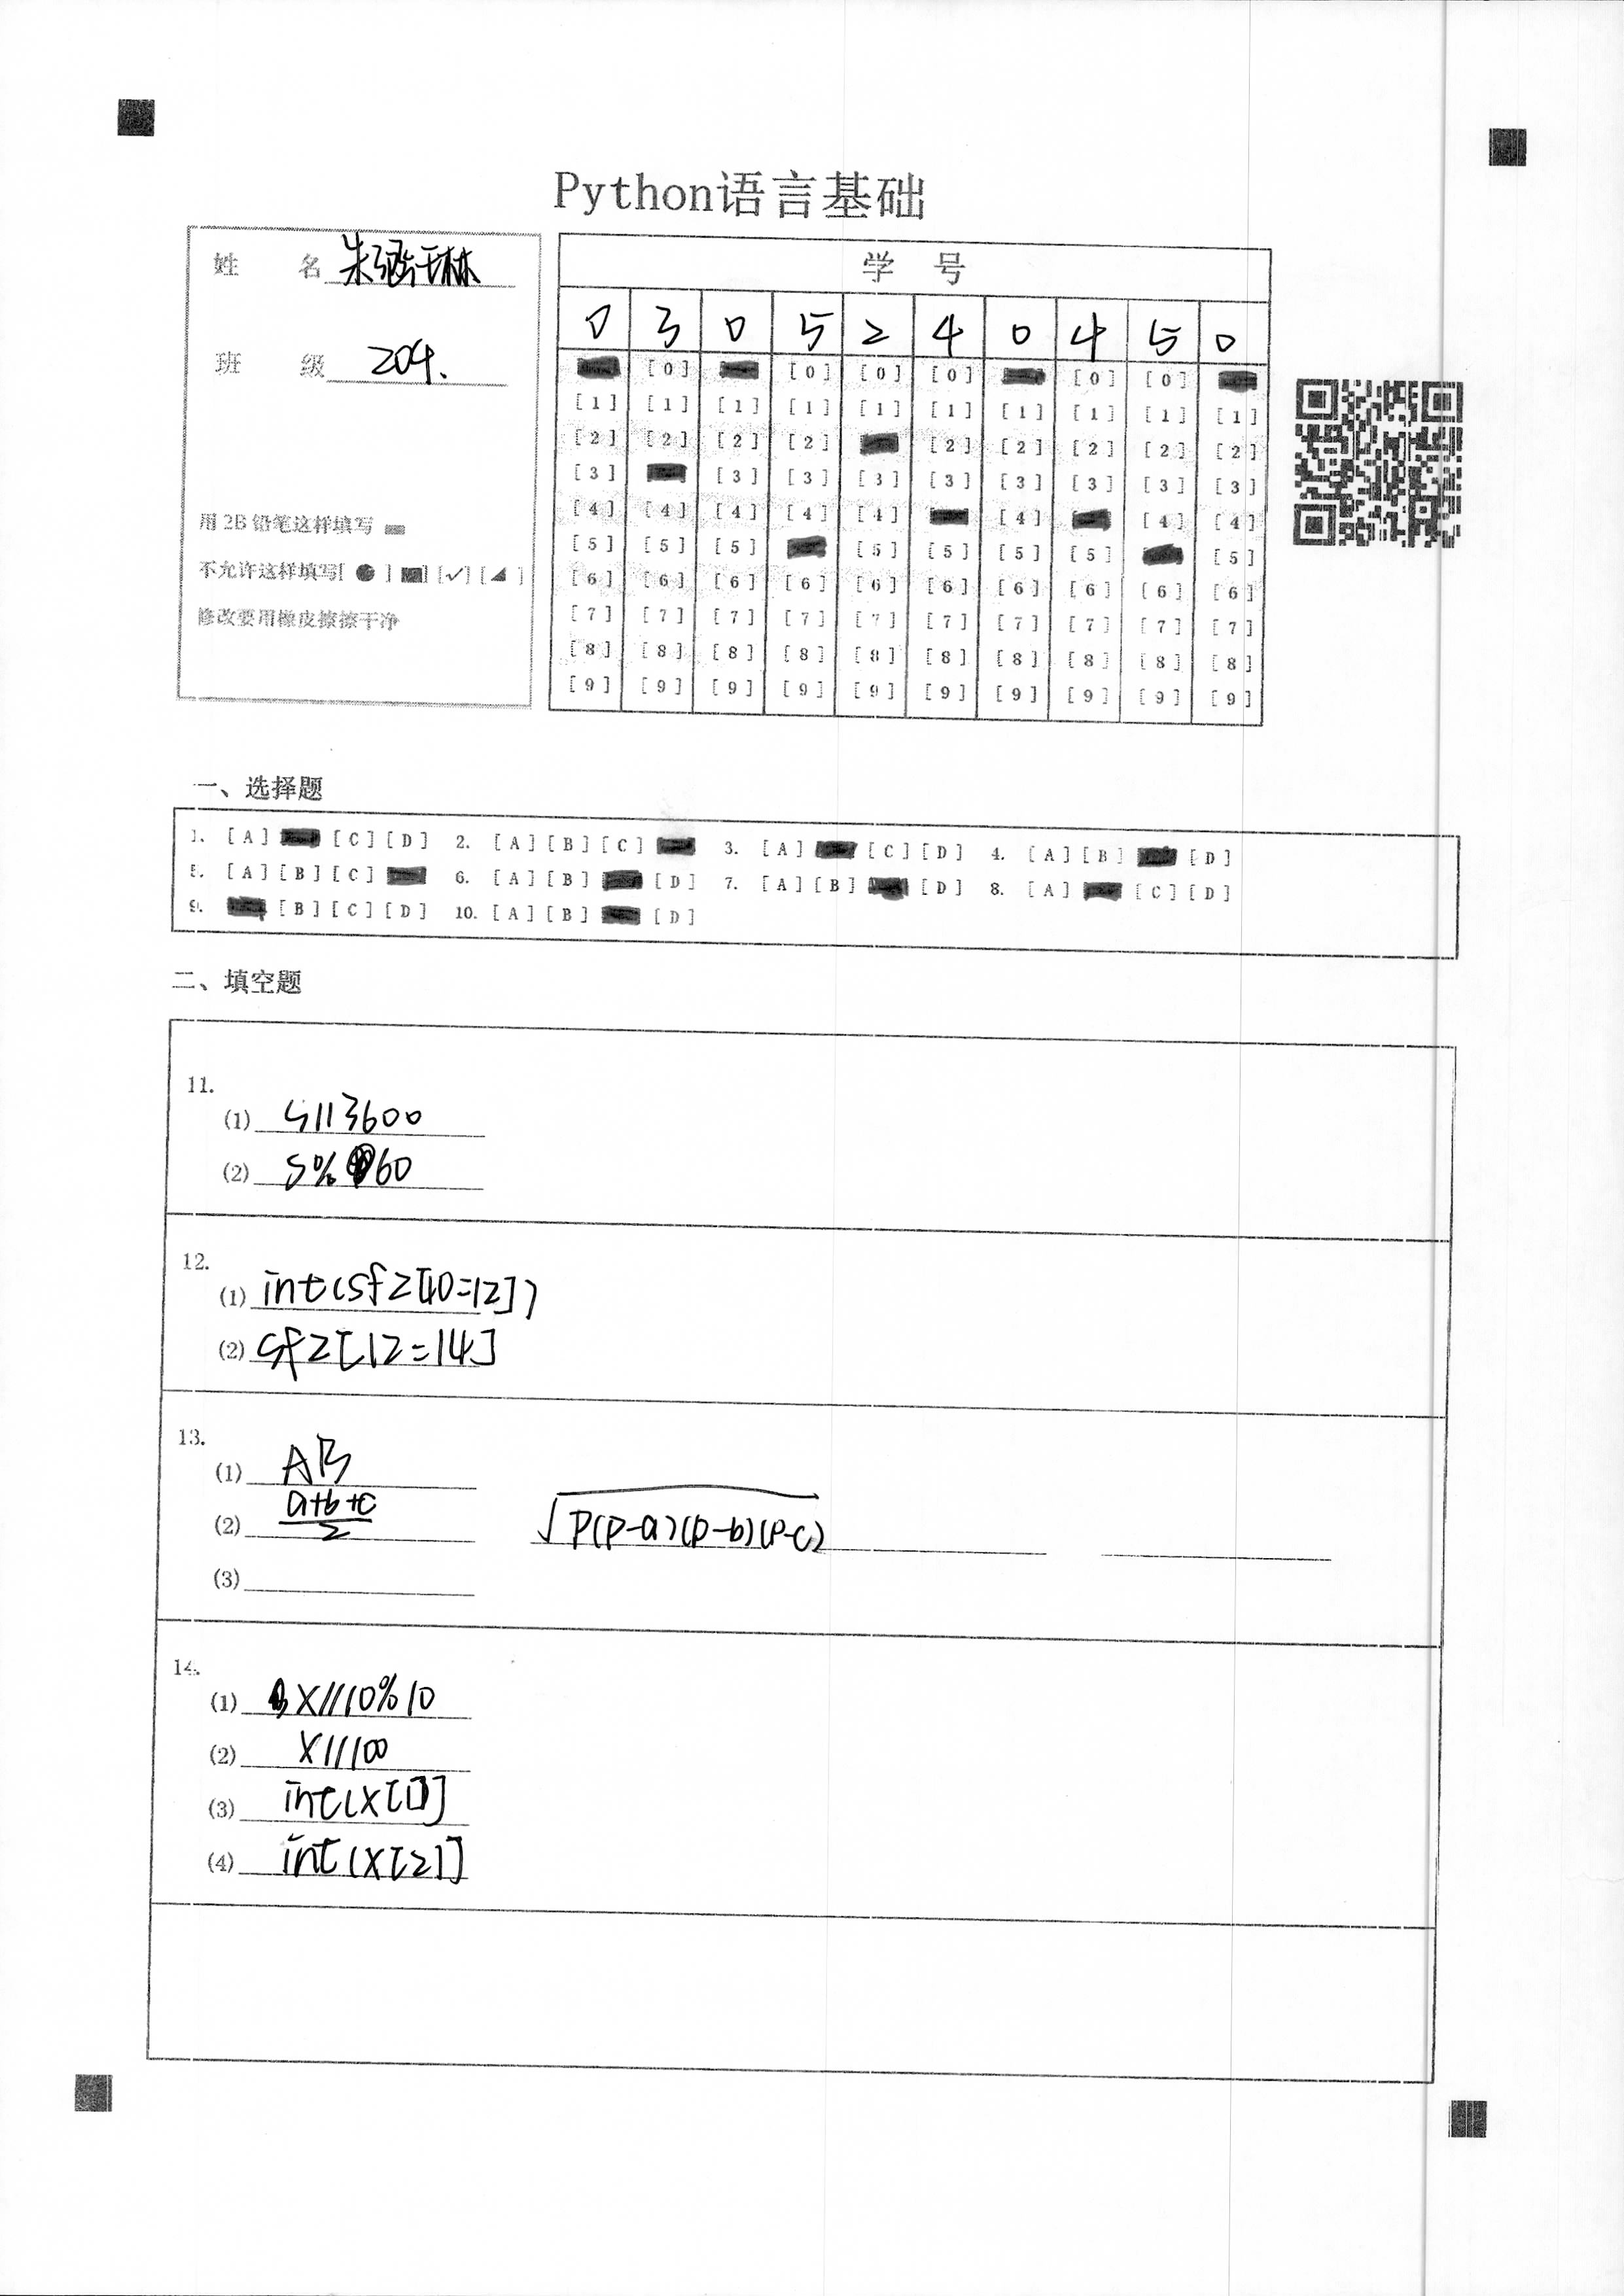 Python语言基础
姓 名 朱涵林
班 级 204.
用 2B 铅笔这样填写
不允许这样填写[ ● ] [✓] [ ]
修改要用橡皮擦擦干净
学 号
0 3 0 5 2 4 0 4 5 0
[0] [0] [0] [0] [0] [0]
[1] [1] [1] [1] [1] [1] [1] [1] [1] [1]
[2] [2] [2] [2] [2] [2] [2] [2] [2]
[3] [3] [3] [3] [3] [3] [3] [3] [3]
[4] [4] [4] [4] [4] [4] [4] [4]
[5] [5] [5] [5] [5] [5] [5] [5]
[6] [6] [6] [6] [6] [6] [6] [6] [6] [6]
[7] [7] [7] [7] [7] [7] [7] [7] [7] [7]
[8] [8] [8] [8] [8] [8] [8] [8] [8] [8]
[9] [9] [9] [9] [9] [9] [9] [9] [9] [9]
一、选择题
1. [A] [C] [D] 2. [A] [B] [C] 3. [A] [C] [D] 4. [A] [B] [D]
5. [A] [B] [C] 6. [A] [B] [D] 7. [A] [B] [D] 8. [A] [C] [D]
9. [B] [C] [D] 10. [A] [B] [D]
二、填空题
11.
(1) s//3600
(2) s%60
12.
(1) int(sfz[10:12])
(2) sfz[12:14]
13.
(1) AB
(2) a+b+c/2 √p(p-a)(p-b)(p-c)
(3)
14.
(1) x//10%10
(2) x//100
(3) int(x[1]]
(4) int(x[2]]